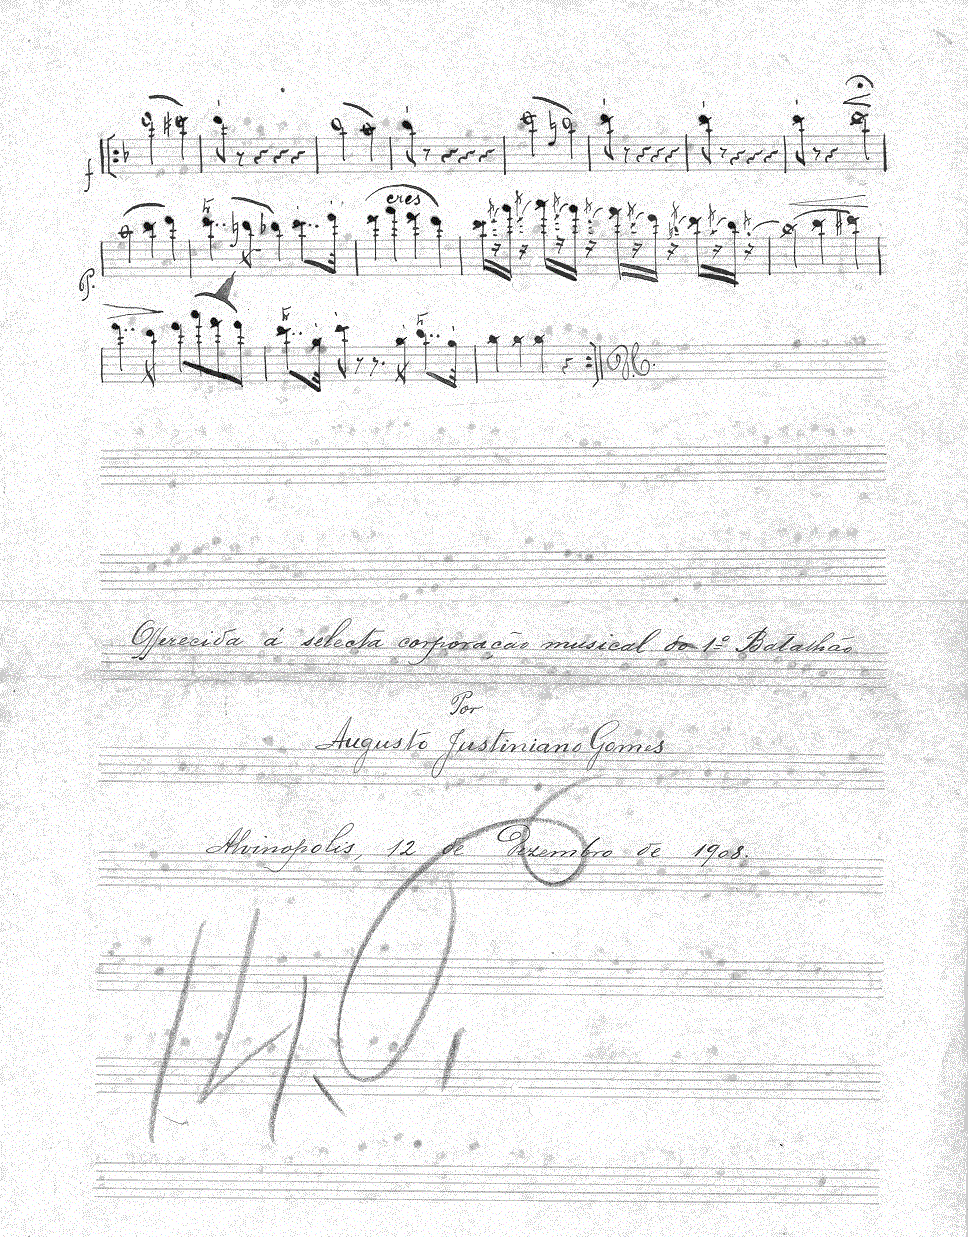 f
cres
p.
Offerecida á selecta corporação musical do 1º Batalhão
Por
Augusto Justiniano Gomes
Alvinopolis, 12 de Dezembro de 1908.